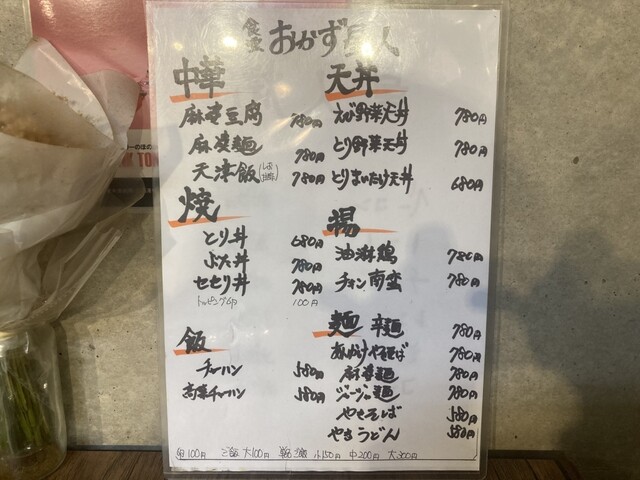 食堂 おかず
中華
麻婆豆腐 780円
麻婆麺 780円
天津飯 780円
焼
とり丼 680円
ぶた丼 780円
セセリ丼 780円
トッピング 100円
飯
チャーハン 580円
高菜チャーハン 580円
天丼
えび野菜天丼 780円
とり野菜天丼 780円
とりまいたけ天丼 680円
揚
油淋鶏 780円
チキン南蛮 780円
麺
辛麺 780円
あんかけやきそば 780円
麻婆麺 780円
ジャージャー麺 780円
やきそば 580円
やきうどん 580円
100円 ご飯 大100円 小150円 中200円 大300円